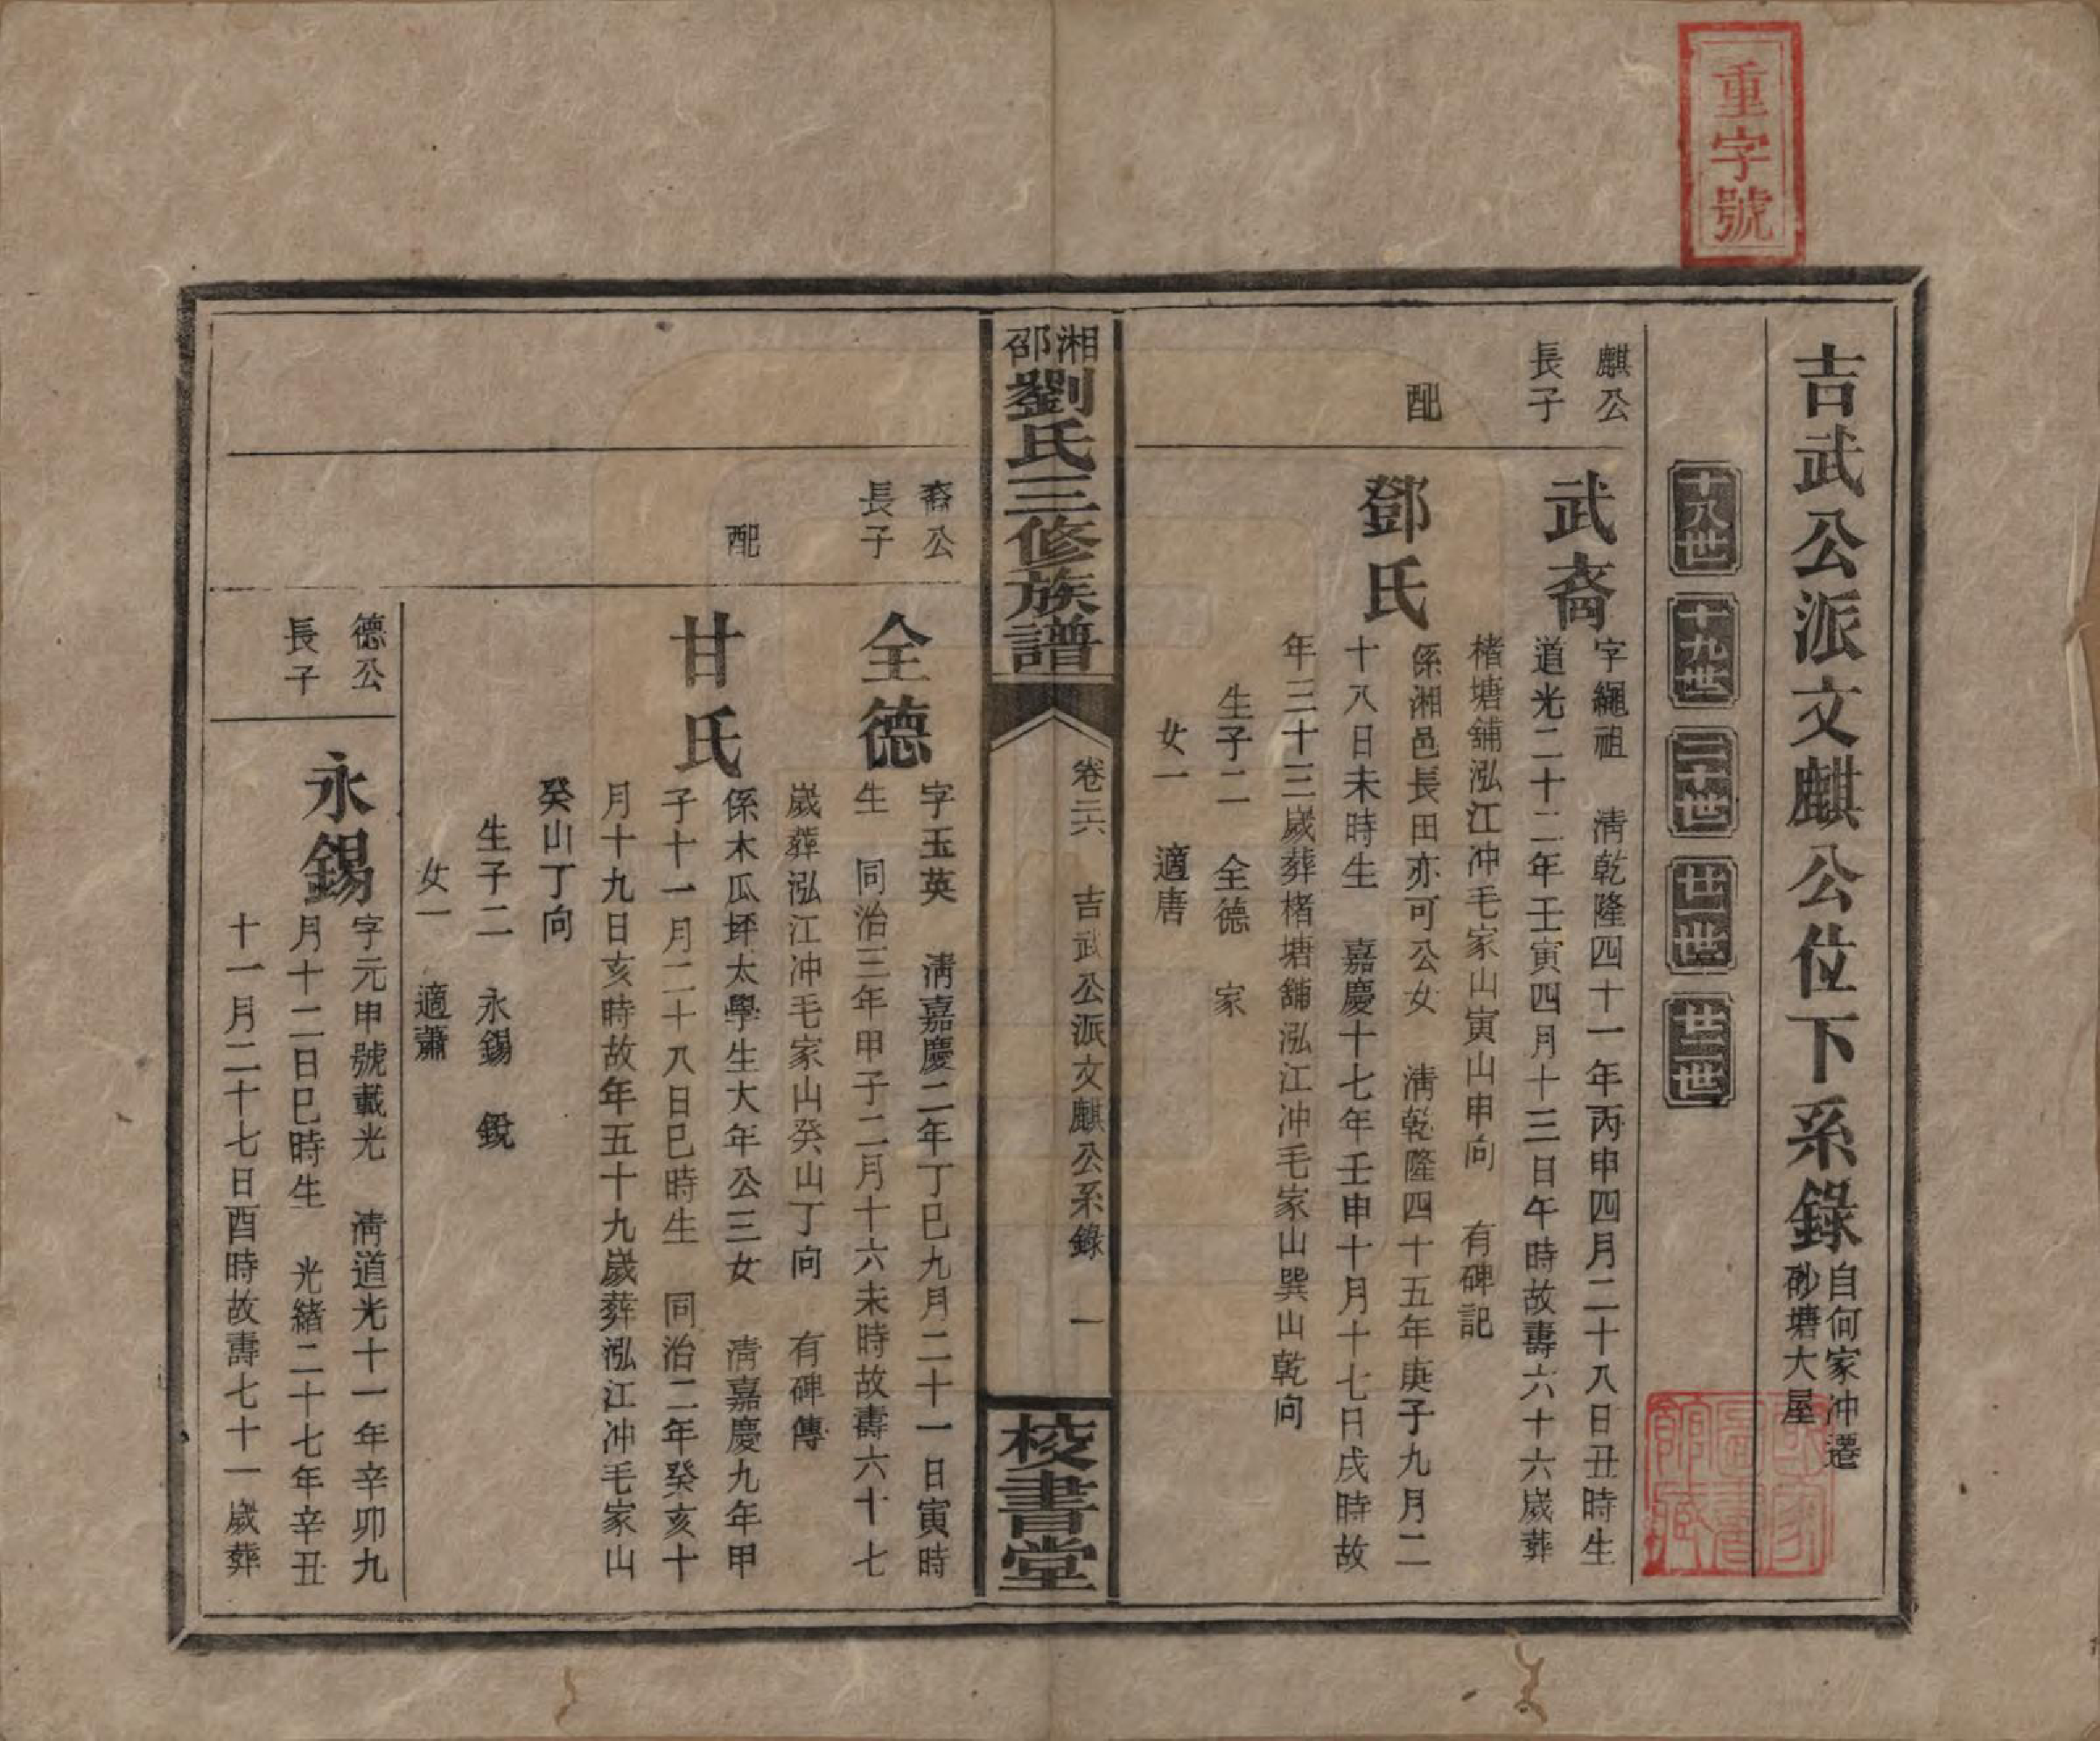 重字號
吉武公派文麒公位下系錄
自何家冲遷
砂塘大屋
十八世
十九世
二十世
廿一世
廿二世
麒公
長子
武裔
字繩祖　清乾隆四十一年丙申四月二十八日丑時生
道光二十二年壬寅四月十三日午時故壽六十六歲葬
楮塘舖泓江冲毛家山寅山申向　有碑記
配
鄧氏
係湘邑長田亦可公女　清乾隆四十五年庚子九月二
十八日未時生　嘉慶十七年壬申十月十七日戌時故
年三十三歲葬楮塘舖泓江冲毛家山巽山乾向
生子二　全德　家
女一　適唐
湘邵劉氏三修族譜
卷二六　吉武公派文麒公系錄　一
校書堂
裔公
長子
全德
字玉英　清嘉慶二年丁巳九月二十一日寅時
生　同治三年甲子二月十六未時故壽六十七
歲葬泓江冲毛家山癸山丁向　有碑傳
配
甘氏
係木瓜坪太學生大年公三女　清嘉慶九年甲
子十一月二十八日巳時生　同治二年癸亥十
月十九日亥時故年五十九歲葬泓江冲毛家山
癸山丁向
生子二　永錫　銳
女一　適蕭
德公
長子
永錫
字元申號載光　清道光十一年辛卯九
月十二日巳時生　光緒二十七年辛丑
十一月二十七日酉時故壽七十一歲葬